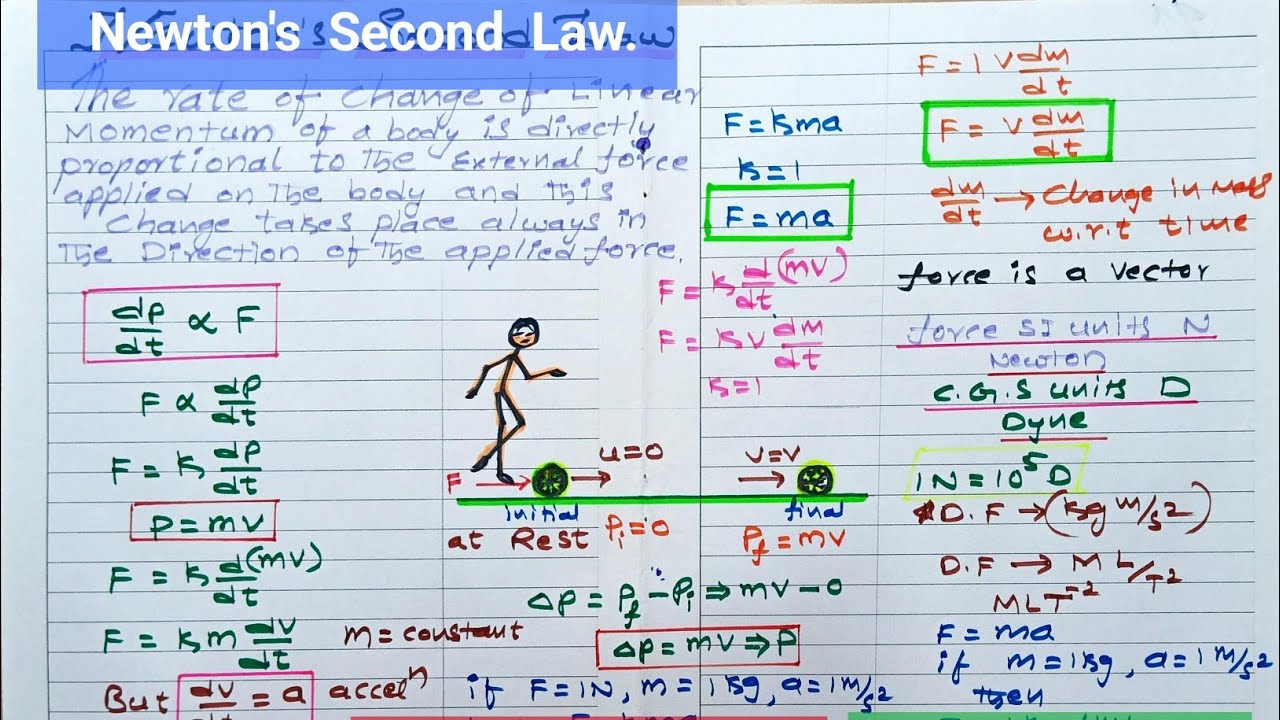 Newton's Second Law.
The rate of change of Linear
Momentum of a body is directly
proportional to the External force
applied on the body and this
Change takes place always in
the Direction of the applied force.
dp/dt ∝ F
F ∝ dp/dt
F = k dp/dt
P = mv
F = k d(mv)/dt
F = k m dv/dt m = constant
But dv/dt = a accelⁿ
F
u=0
v=v
initial
final
at Rest Pi=0
Pf = mv
Δp = Pf - Pi ⇒ mv - 0
Δp = mv ⇒ P
if F=1N, m=1kg, a=1m/s2
F = kma
k=1
F = ma
F = k d(mv)/dt
F = k v dm/dt
k=1
F = 1 v dm/dt
F = v dm/dt
dm/dt → Change in mass
w.r.t time
force is a vector
force SI units N
Newton
C.G.S units D
Dyne
1N = 10⁵ D
D.F → (kg m/s2)
D.F → M L/T2
MLT⁻²
F = ma
if m=1kg, a=1m/s2
then